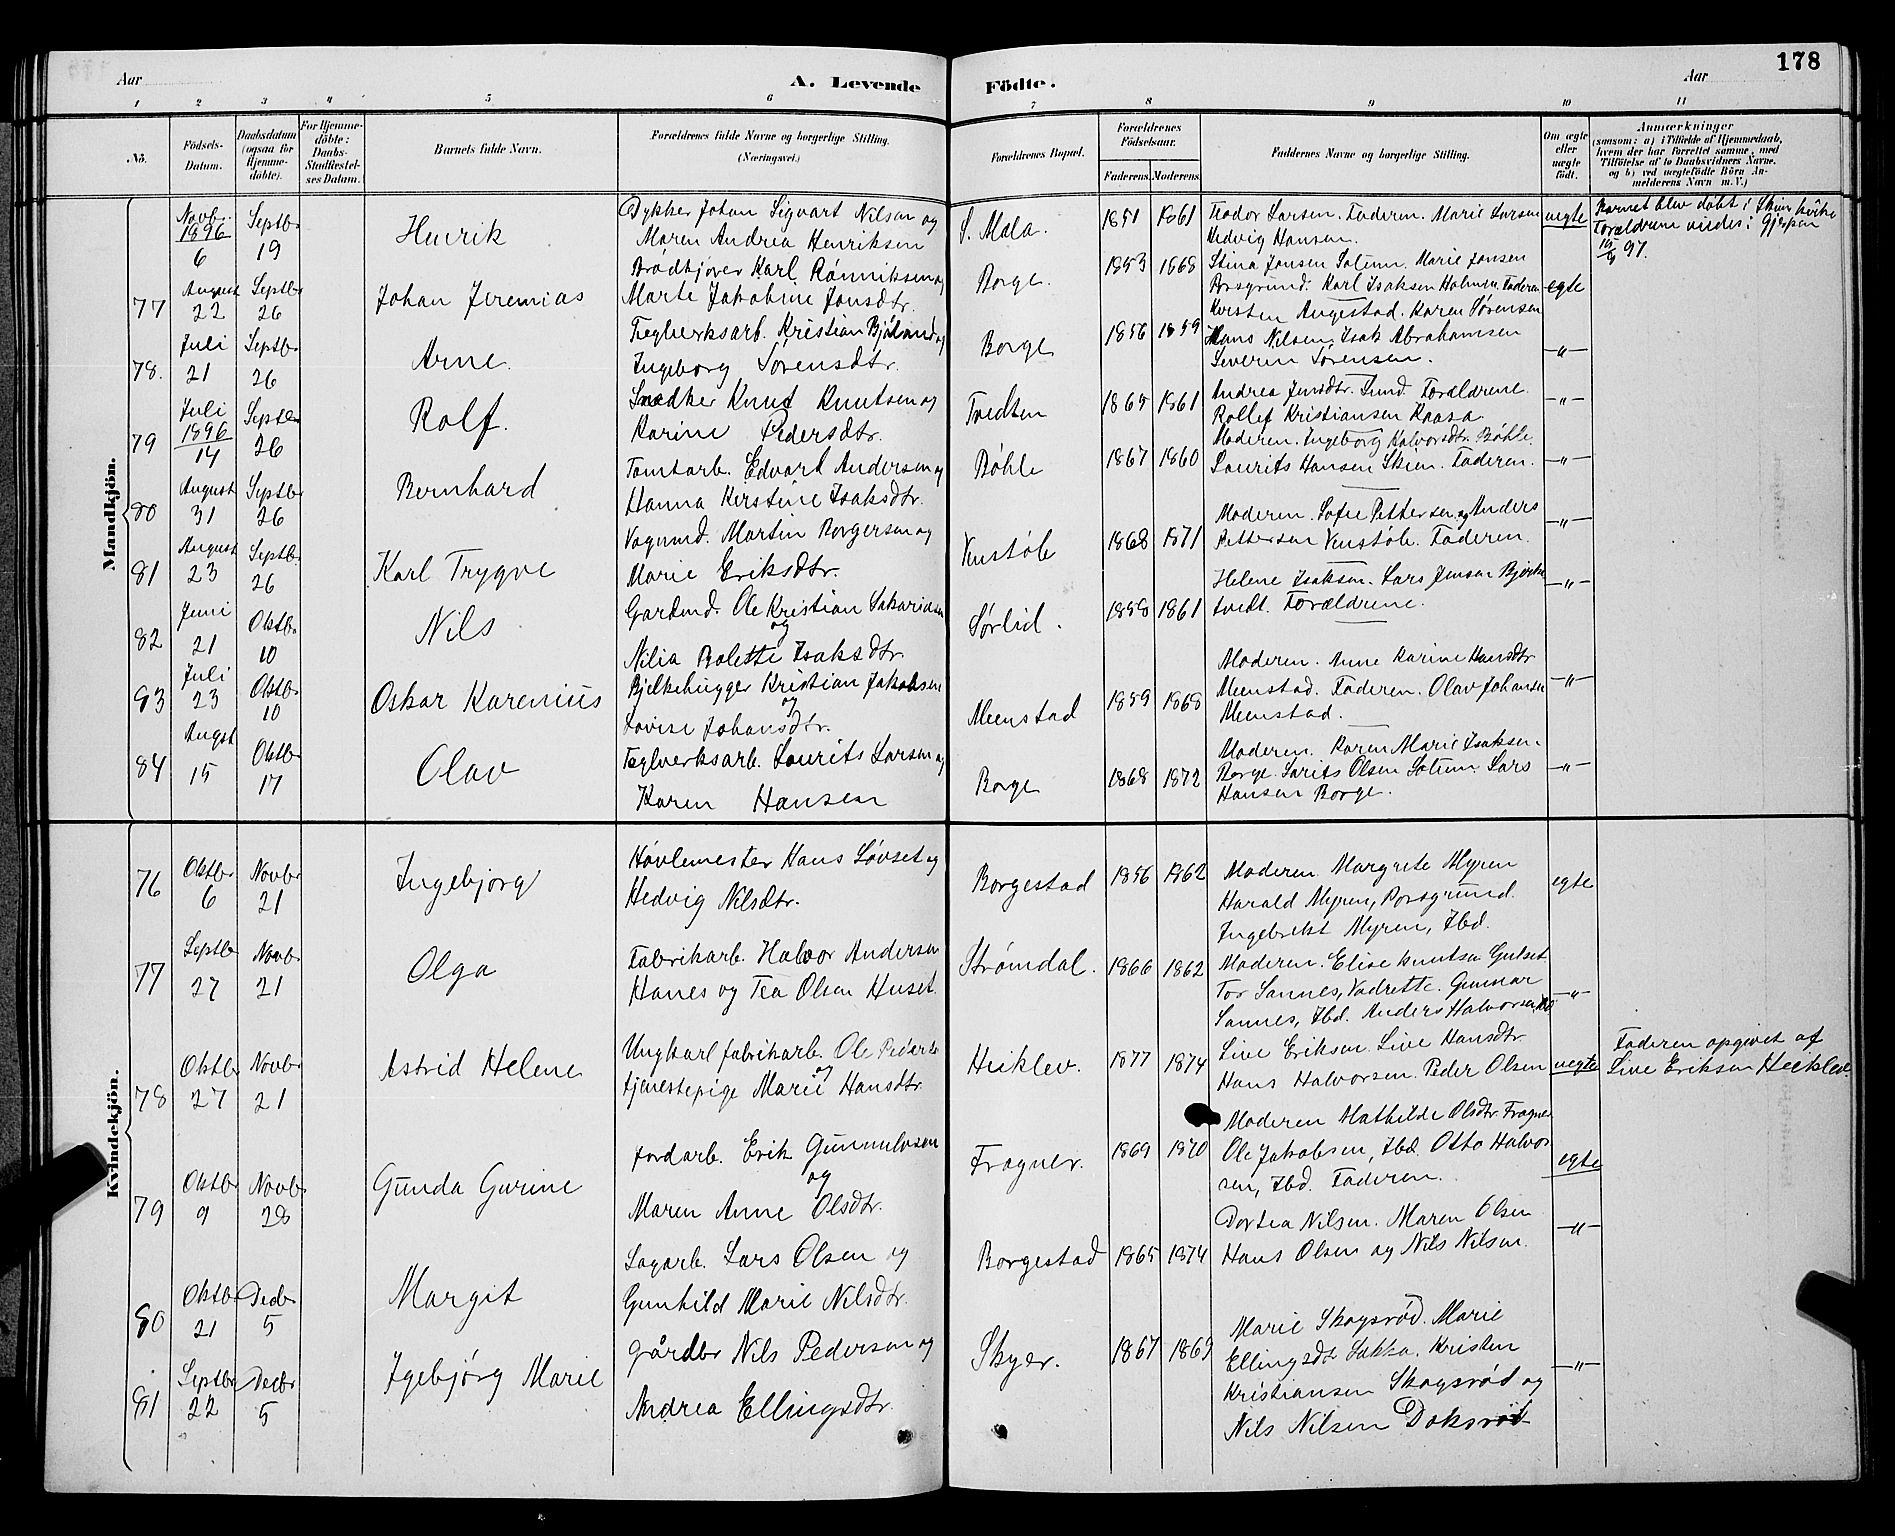 178
Aar
A. Levende
Födte.
Aar
1 2 3 4 5 6 7 8 9 10 11
No.
Födsels-Datum.
Daabsdatum (ogsaa for Hjemme-döbte).
For Hjemme-döbte: Daabs-Stadfæstel-ses Datum.
Barnets fulde Navn.
Forældrenes fulde Navne og borgerlige Stilling. (Næringsvei.)
Forældrenes Bopæl.
Forældrenes Födselsaar.
Faderens. Moderens.
Faddernes Navne og borgerlige Stilling.
Om ægte eller uægte födt.
Anmærkninger
(saasom: a) i Tilfælde af Hjemmedaab, hvem der har forrettet samme, med Tilföielse af to Daabsvidners Navne, og b) ved uægtefödte Börn An-melderens Navn m. V.)
Mandkjön.
Novb. 1896 6
Septbr 19
Henrik
Dykker Johan Sigvart Nilsen og
Maren Andrea Henriksen
S. Mæla.
1851 1861
Teodor Larsen. Faderen. Marie Larsen
Hedvig Hansen.
uegte
Barnet blev døbt i Skien kirke
Forældrene viedes i Gjerpen
97.
77
August 22
Septbr 26
Johan Jeremias
Brødkjører Karl Rønniksen og
Marte Jakobine Jonsdtr.
Borge.
1853 1868
Stina Jonsen Solum. Marie Jonsen
Porsgrund. Karl Isaksen Holmen. Faderen
egte
78.
Juli 21
Septbr 26
Arne.
Teglverksarb. Kristian Bjøland og
Ingeborg Sørensdtr.
Borge
1856 1859
Kirsten Augestad. Karen Sørensen
Hans Nilsen. Isak Abrahamsen
Severin Sørensen.
—"—
79
Juli 1896 14
Septbr 26
Rolf.
Snedker Knut Knutsen og
Karine Pedersdtr.
Tvedten
1865 1861
Andrea Jensdtr. Lund. Forældrene.
Rollef Kristiansen Kaasa.
—"—
80
August 31
Septbr 26
Bernhard
Tomtarb. Edvart Andersen og
Hanna Kirstine Isaksdtr.
Bøhle
1867 1860
Moderen. Ingeborg Halvorsdtr. Bøhle.
Laurits Hansen Skien. Faderen.
—"—
81
August 23
Septbr. 26
Karl Trygve
Vognmd. Martin Borgersen og
Marie Eriksdtr.
Venstøb
1868 1871
Moderen. Sofie Pettersen og Anders
Pettersen Venstøb. Faderen.
—"—
82
Juni 21
Oktbr 10
Nils
Gardmd. Ole Kristian Sakariasen
og
Nilia Bolette Isaksdtr.
Sørlid.
1858 1861
Helene Isaksen. Lars Jensen Bjerke
tvedt. Forældrene.
—"—
83
Juli 23
Oktbr 10
Oskar Karenius
Bjelkehugger Kristian Jakobsen
og
Lovise Johansdtr.
Meenstad
1859 1868
Moderen. Anne Karine Hansdtr
Meenstad. Faderen. Olav Johansen
Meenstad.
—"—
84
Augst 15
Oktbr 17
Olav
Teglverksarb. Laurits Larsen og
Karen Hansen
Borge
1868 1872
Moderen. Karen Marie Isaksen.
Borge. Larits Olsen Solum. Lars
Hansen Borge.
—"—
Kvindekjön.
76
Oktbr 6
Novbr 21
Ingebjørg
Høvlemester Hans Løvset og
Hedvig Nilsdtr.
Borgestad
1856 1862
Moderen. Margrete Myren
Harald Myren, Porsgrund.
Ingebrikt Myren, Ibd.
egte
77
Septbr 27
Novbr 21
Olga
Fabrikarb. Halvor Andersen
Hanes og Tea Olsen Huset.
Strømdal.
1866 1862
Moderen. Elise Knutsen Gulset
Tor Sannes, Vadrette. Gunnar
Sannes, Ibd. Anders Halvorsen, Ibd
—"—
78
Oktbr 27
Novbr 21
Astrid Helene
Ungkarl fabrikarb. Ole Pedersen
og
tjenestepige Marie Hansdtr.
Heiklev.
1877 1874
Live Eriksen. Live Hansdtr
Hans Halvorsen. Peder Olsen
uegte
Faderen opgivet af
Live Eriksen Heiklev.
79
Oktbr 9
Novbr 28
Gunda Gurine
Jordarb. Erik Gunnulvsen
og
Maren Anne Olsdtr.
Frogner.
1869 1870
Moderen Mathilde Olsdtr. Frogner
Ole Jakobsen, Ibd. Otto Halvor
sen, Ibd. Faderen.
egte
80
Oktbr 21
Decbr 5
Margit
Sagarb. Lars Olsen og
Gunhild Marie Nilsdtr.
Borgestad
1865 1874
Dortea Nilsen. Maren Olsen
Hans Olsen og Nils Nilsen.
—"—
81
Septbr 22
Decbr 5
Igebjørg Marie
gårdbr Nils Pedersen og
Andrea Ellingsdtr.
Skyer.
1867 1869
Marie Skogsrød. Marie
Ellingsdtr Sakka. Kristen
Kristiansen Skogsrød og
Nils Nilsen Doksrød
—"—